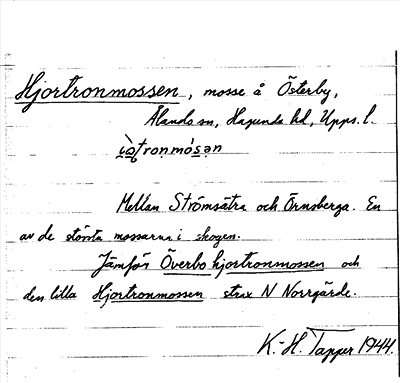 Hjortronmossen, mosse å Österby,
Ålands sn, Hagunda hd, Upps. l.
Mellan Strömsätra och Örnsberga. En
av de största mossarna i skogen.
Jämför Överbo hjortronmossen och
den lilla Hjortronmossen strax N Norrgärde.
K.-H. Tapper 1944.